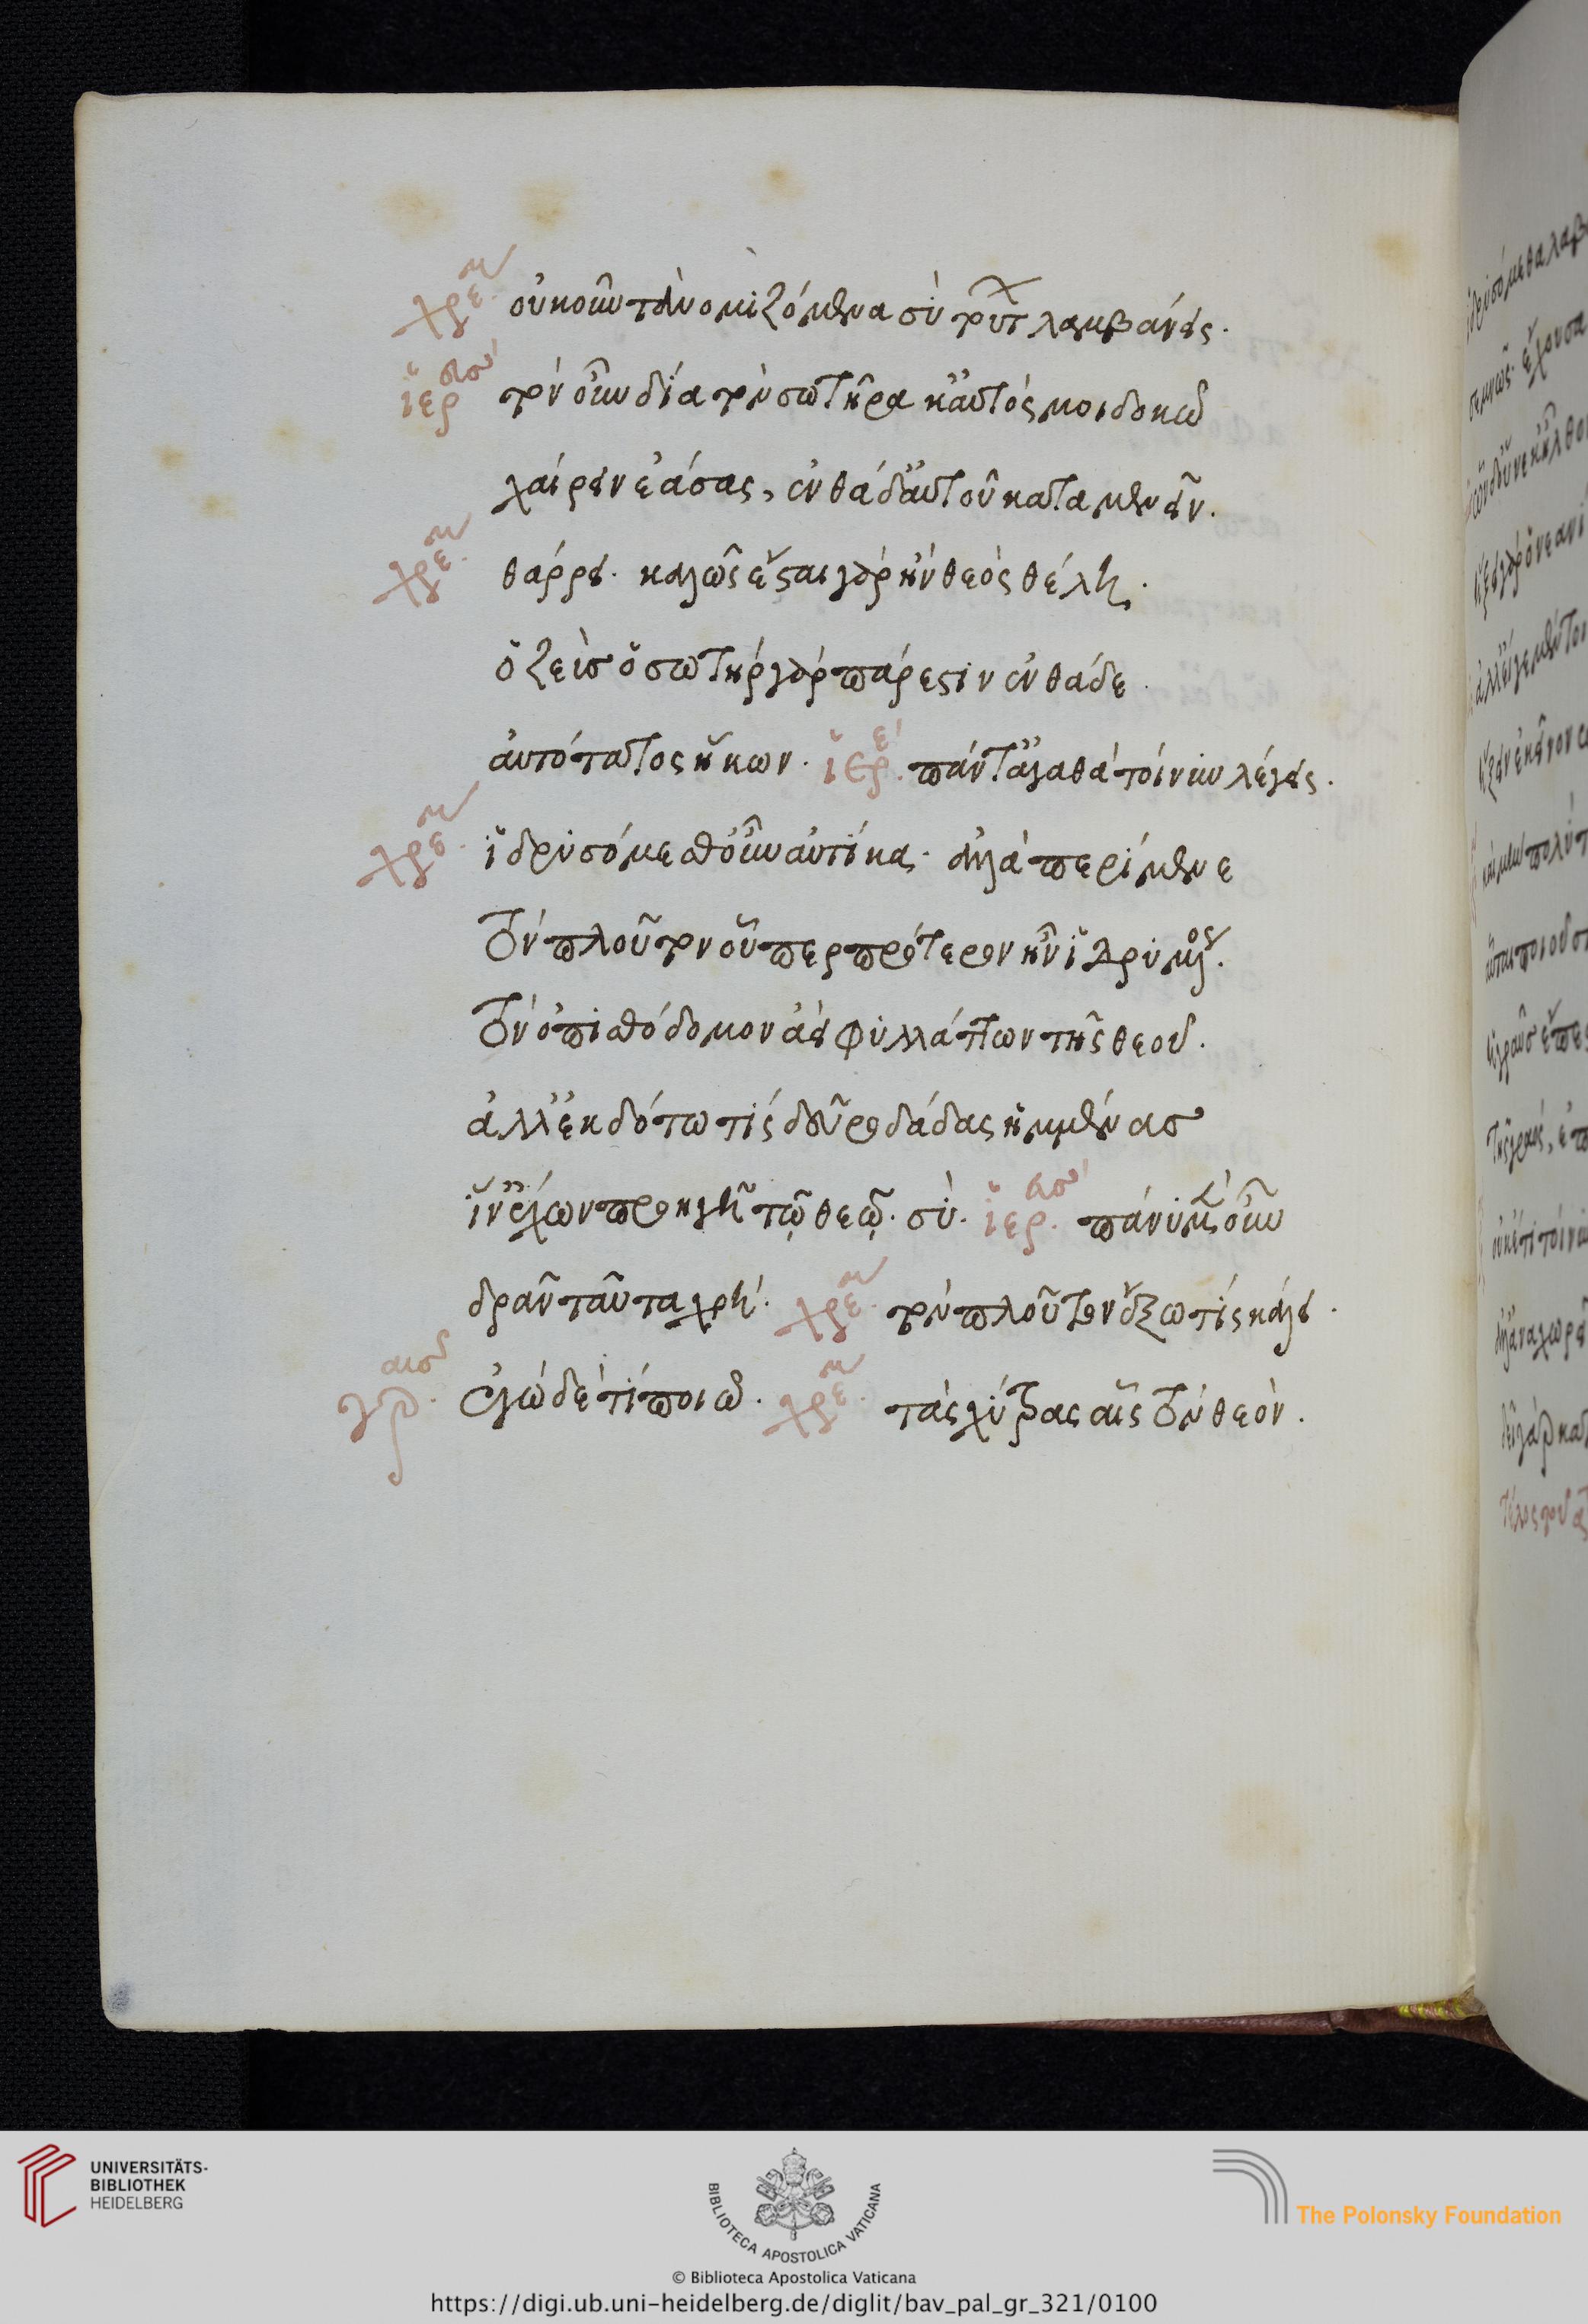 χρεμ οὐκοῦν τὰ νομιζόμενα σὺ τούτ λαμβάνεις.
ἱερ τὸν οὖν δία τὸν σωτῆρα καὐτός μοι δοκῶ
χαίρειν ἐάσας, ἐνθάδ' αὐτοῦ καταμενεῖν.
χρεμ. θάρρει. καλῶς ἔσται γὰρ ἢν θεὸς θέλῃ.
ὁ ζεὺς ὁ σωτὴρ γὰρ πάρεστιν ἐνθάδε.
αὐτόματος ἥκων. ἱερ. πάντ' ἀγαθὰ τοίνυν λέγεις.
χρεμ. ἱδρυσόμεσθ' οὖν αὐτίκα. ἀλλὰ περίμενε
τὸν πλοῦτον οὗπερ πρότερον ἦν ἱδρυμένος.
τὸν ὀπισθόδομον ἀεὶ φυλλάττων τῆς θεοῦ.
ἀλλ' ἐκδότω τίς δεῦρο δάδας ἡμμένας
ἵν' ἔχων προηγῇ τῷ θεῷ. σύ. ἱερ. πάνυ μὲν οὖν
δρᾶν ταῦτα χρή. χρεμ. τὸν πλοῦτον ἔξω τίς κάλει.
γρ. ἐγὼ δὲ τί ποιῶ. χρεμ. τὰς χύτρας αἷς τὸν θεόν.
UNIVERSITÄTS-
BIBLIOTHEK
HEIDELBERG
BIBLIOTECA APOSTOLICA VATICANA
The Polonsky Foundation
© Biblioteca Apostolica Vaticana
https://digi.ub.uni-heidelberg.de/diglit/bav_pal_gr_321/0100